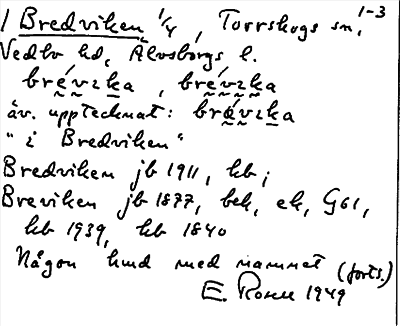 1 Bredviken 1/4, Torrskogs sn, 1-3
Vedbo hd, Älvsborgs l.
brévıka, brévıka
äv. upptecknat: brǻvıka
"i Bredviken"
Bredviken jb 1911, kb;
Breviken jb 1877, bek, ek, G61,
kb 1939, kb 1840
Någon hmd med namnet (forts.)
E. Rosell 1949